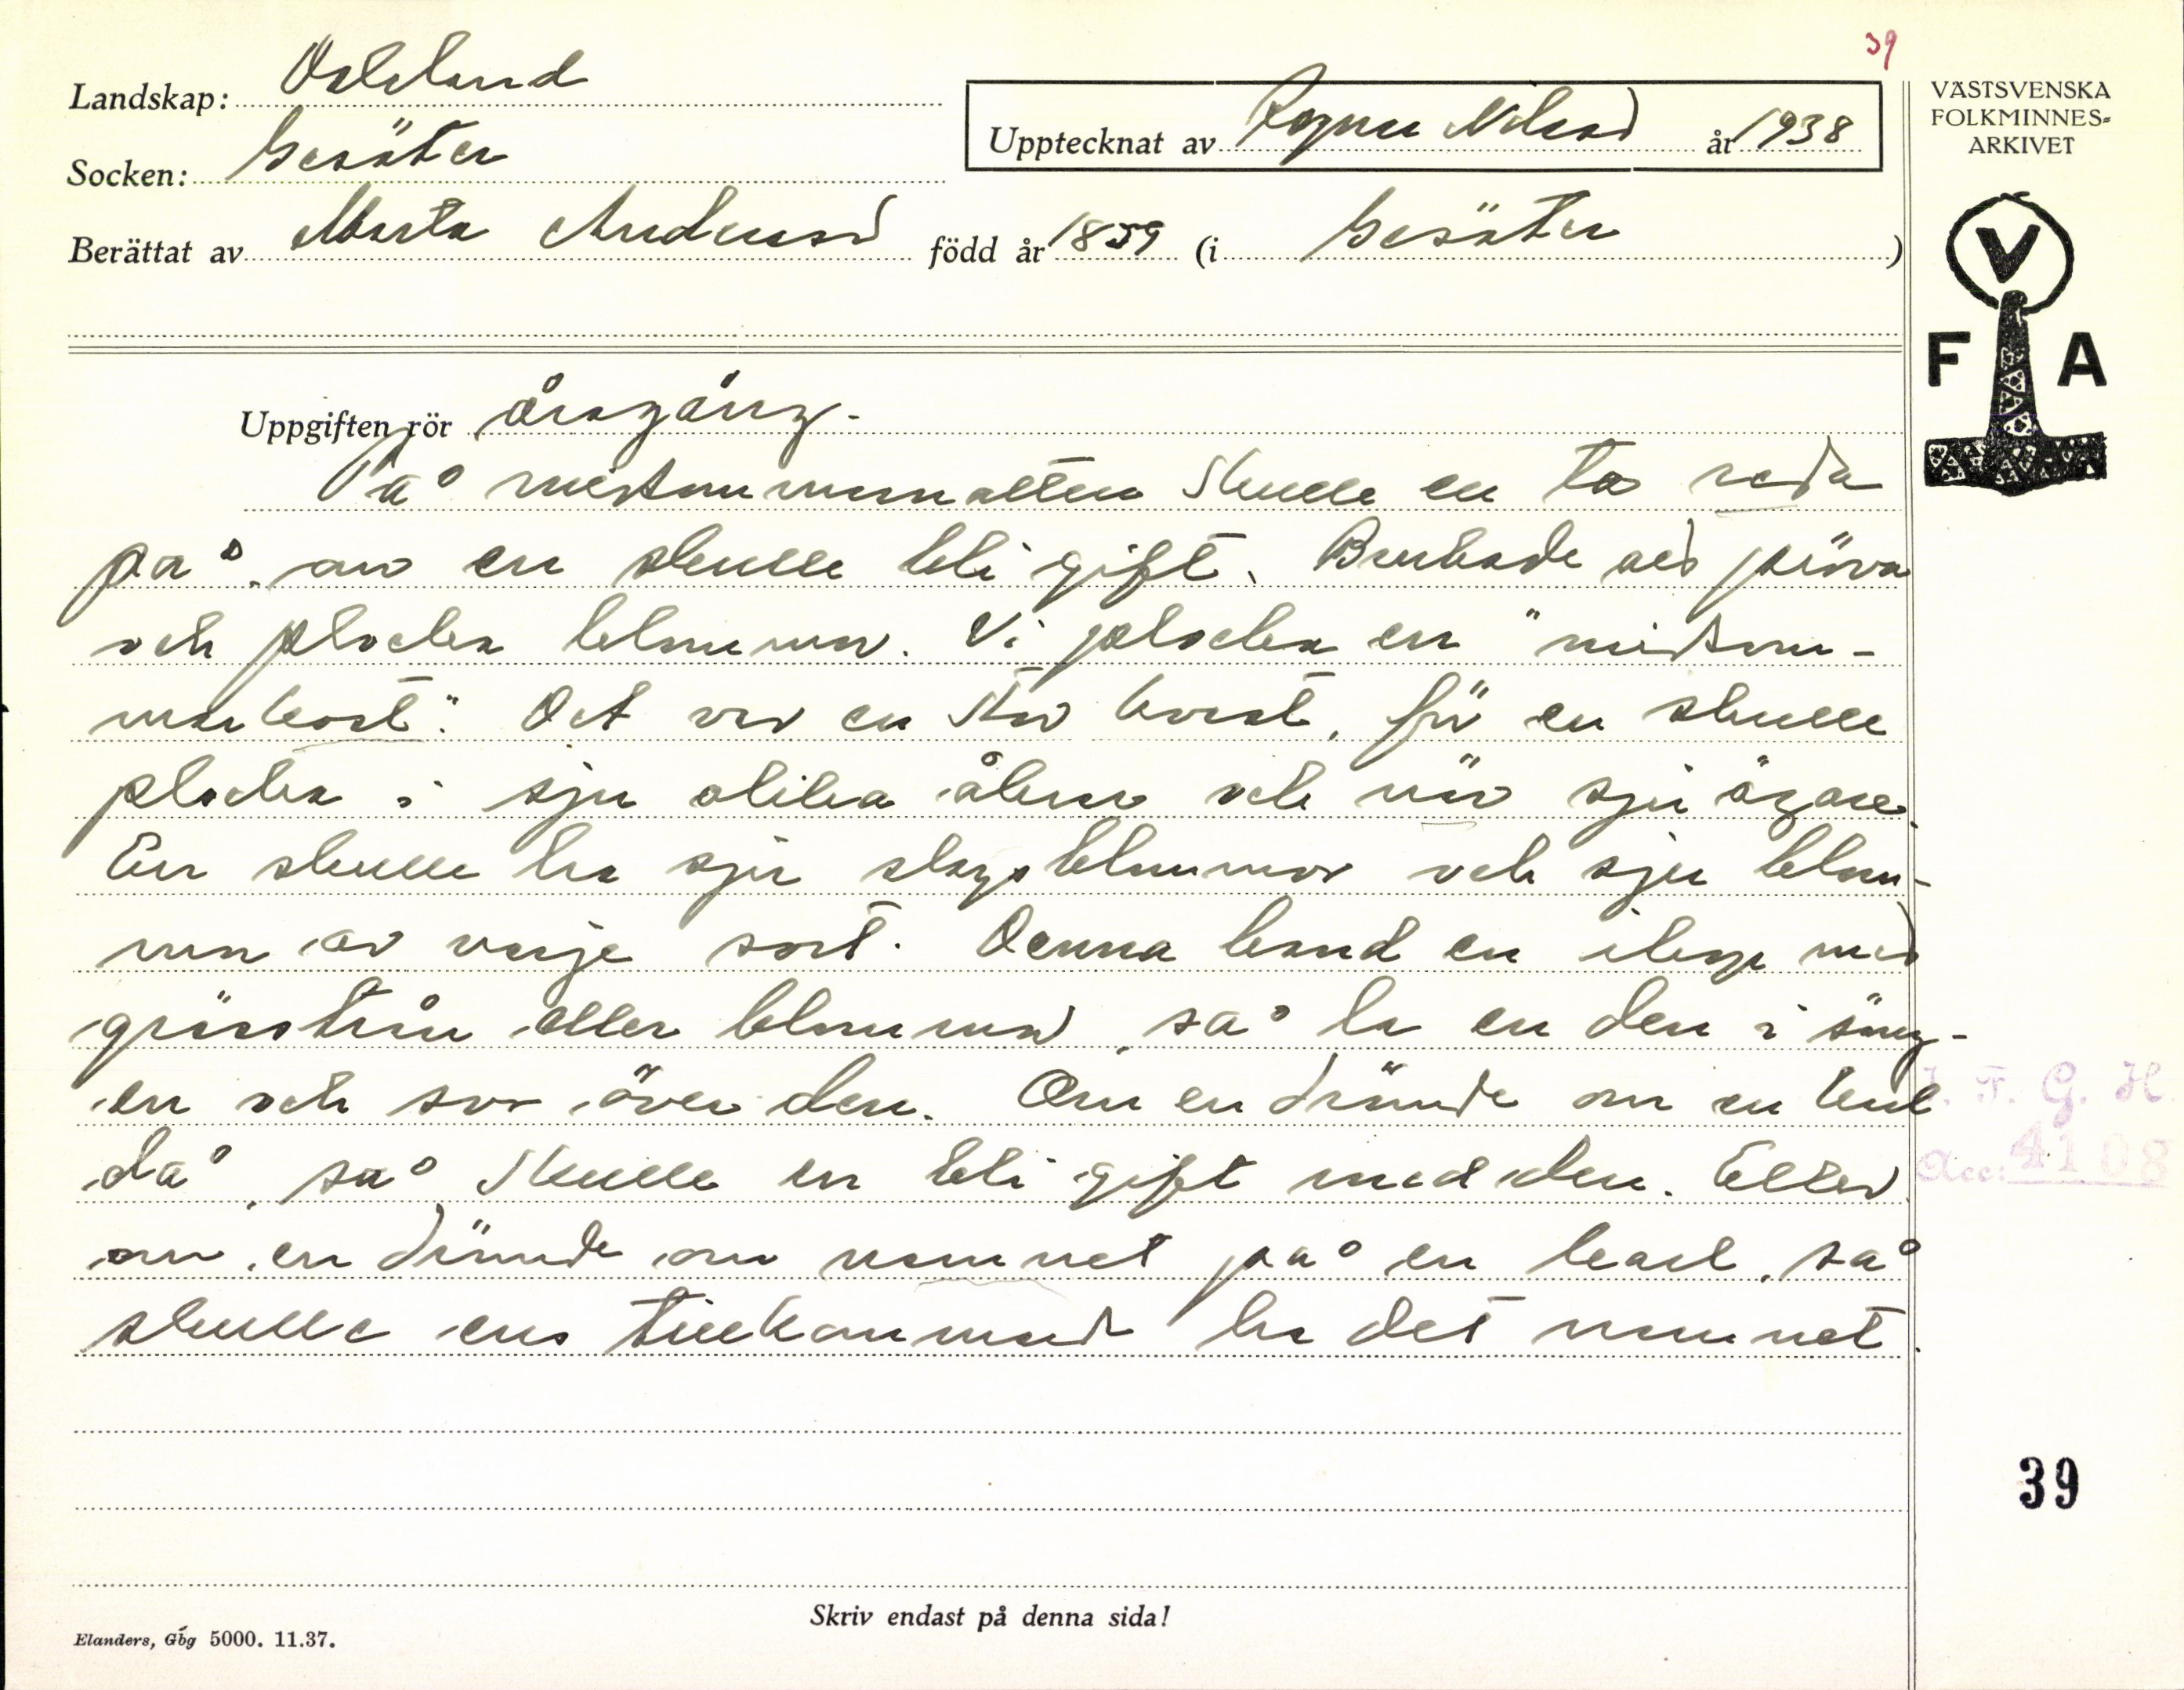 39
Landskap: Dalsland
Socken: Gesäter
Upptecknat av Ragnar Nilsson år 1938
VÄSTSVENSKA
FOLKMINNES-
ARKIVET
Berättat av Marta Andersson född år 1859 (i Gesäter)
V
F A
Uppgiften rör årsgång.
På midsommarnatten skulle en ta reda
på, om en skulle bli gift. Brukade att pröva
och plocka blommor. Vi plocka en "midsom-
markvast". Det var en stor kvast, för en skulle
plocka i sju olika åkrar och när sju ägare.
En skulle ha sju slags blommor och sju blom-
mor av varje sort. Denna band en ihop med
grässtrån eller blommor, så la en den i säng-
en och sov över den. Om en drömde om en karl
då, så skulle en bli gift med den. Eller
om en drömde om namnet på en karl, så
skulle ens tillkommand ha det namnet.
I. F. G. H.
Acc: 4108
39
Skriv endast på denna sida!
Elanders, Gbg 5000. 11.37.